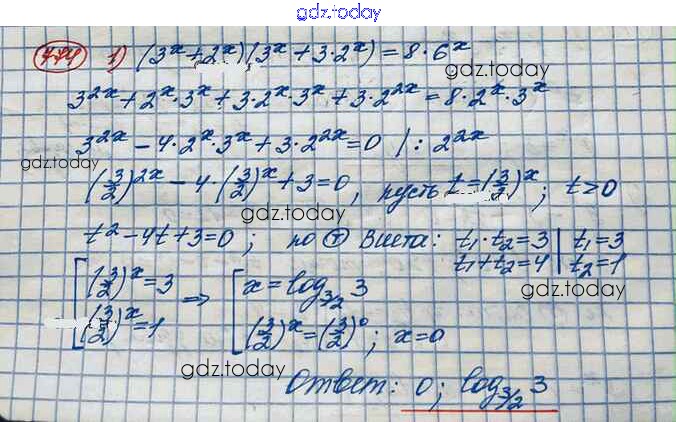 gdz.today
774 1) (3^x + 2^x)(3^x + 3·2^x) = 8·6^x
gdz.today
3^{2x} + 2^x·3^x + 3·2^x·3^x + 3·2^{2x} = 8·2^x·3^x
3^{2x} - 4·2^x·3^x + 3·2^{2x} = 0 | : 2^{2x}
gdz.today
(3/2)^{2x} - 4·(3/2)^x + 3 = 0, пусть t = (3/2)^x; t > 0
gdz.today
t² - 4t + 3 = 0; по Т Виета: t₁·t₂ = 3 | t₁ = 3
t₁ + t₂ = 4 | t₂ = 1
[ (3/2)^x = 3 => [ x = log_{3/2} 3
gdz.today
(3/2)^x = 1 (3/2)^x = (3/2)^0; x = 0
gdz.today
Ответ: 0; log_{3/2} 3